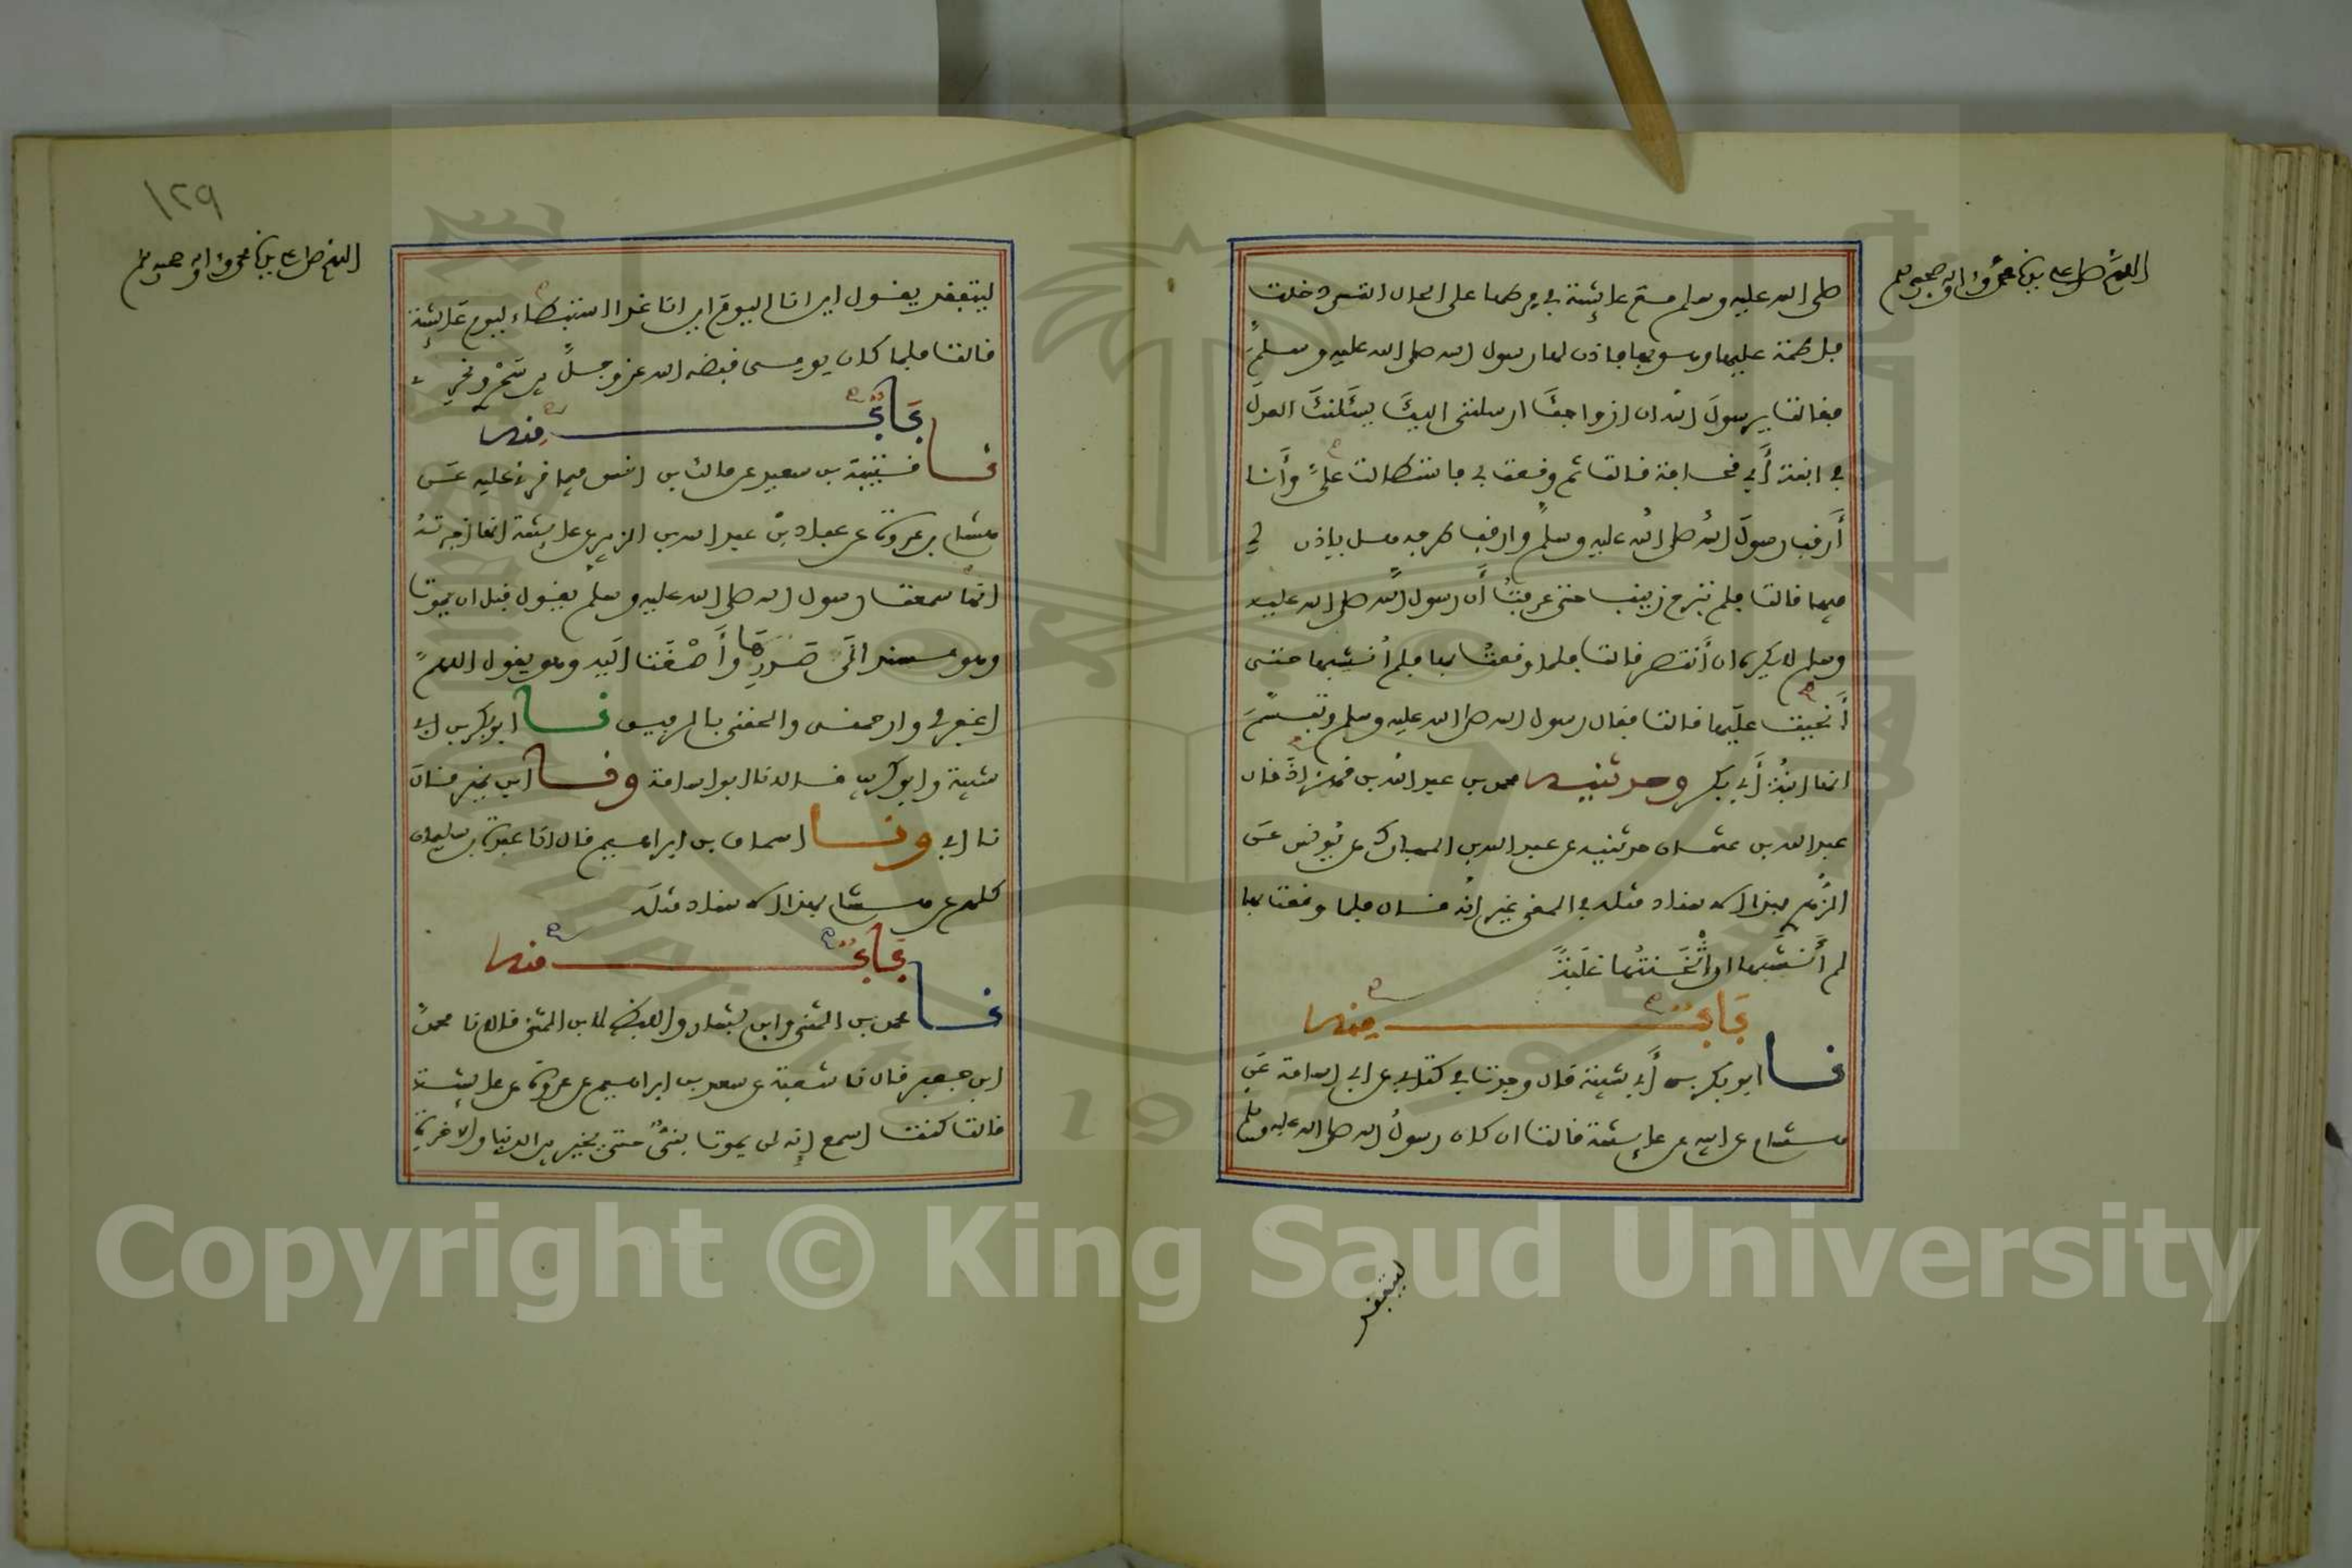 اللهم صل على سيدنا محمد وءاله وصحبه وسلم
صلى الله عليه وسلم مع عائشة في مرطها على الحال التي دخلت
فاطمة عليها وهو بها فاذن لها رسول الله صلى الله عليه وسلم
فقالت يرسول الله ان ازواجك ارسلنني اليك يسئلنك العدل
في ابنة أبي قحافة قالت ثم وقعت بي فاستطالت علي وأنا
أرقب رسول الله صلى الله عليه وسلم وارقب طرفه هل ياذن لي
فيها قالت فلم تبرح زينب حتى عرفت أن رسول الله صلى الله عليه
وسلم لا يكره ان أنتصر قالت فلما وقعت بها فلم أنشبها حتى
أنحيت عليها قالت فقال رسول الله صلى الله عليه وسلم وتبسم
انها ابنة أبي بكر وحدثنيه محمد بن عبد الله بن قهزاذ قال
عبد الله بن عثمان حدثنيه عن عبد الله بن المبارك عن يونس عن
الزهري بهذا الاسناد مثله في المعنى غير انه قال فلما وقعت بها
لم أنشبها ان أثخنتها غلبة
باب منه
نا ابو بكر بن أبي شيبة قال وجدت في كتابي عن ابي اسامة عن
هشام عن ابيه عن عائشة قالت ان كان رسول الله صلى الله عليه وسلم
ليتفقد
١٢٩
اللهم صل على سيدنا محمد وءاله وصحبه وسلم
ليتفقد يقول اين انا اليوم اين انا غدا استبطاء ليوم عائشة
قالت فلما كان يومي قبضه الله عز وجل بين سحري ونحري
باب منه
نا قتيبة بن سعيد عن مالك بن انس فيما قرئ عليه عن
هشام بن عروة عن عباد بن عبد الله بن الزبير عن عائشة انها اخبرته
انها سمعت رسول الله صلى الله عليه وسلم يقول قبل ان يموت
وهو مسند الى صدرها وأصغت اليه وهو يقول اللهم
اغفر لي وارحمني والحقني بالرفيق نا ابو بكر بن ابي
شيبة وابو كريب قالا نا ابو اسامة ونا ابن نمير قال
نا ابي ونا اسحاق بن ابراهيم قال انا عبدة بن سليمان
كلهم عن هشام بهذا الاسناد مثله
باب منه
نا محمد بن المثنى وابن بشار واللفظ لابن المثنى قالا نا محمد
ابن جعفر قال نا شعبة عن سعد بن ابراهيم عن عروة عن عائشة
قالت كنت اسمع انه لن يموت نبي حتى يخير بين الدنيا والاخرة
Copyright © King Saud University